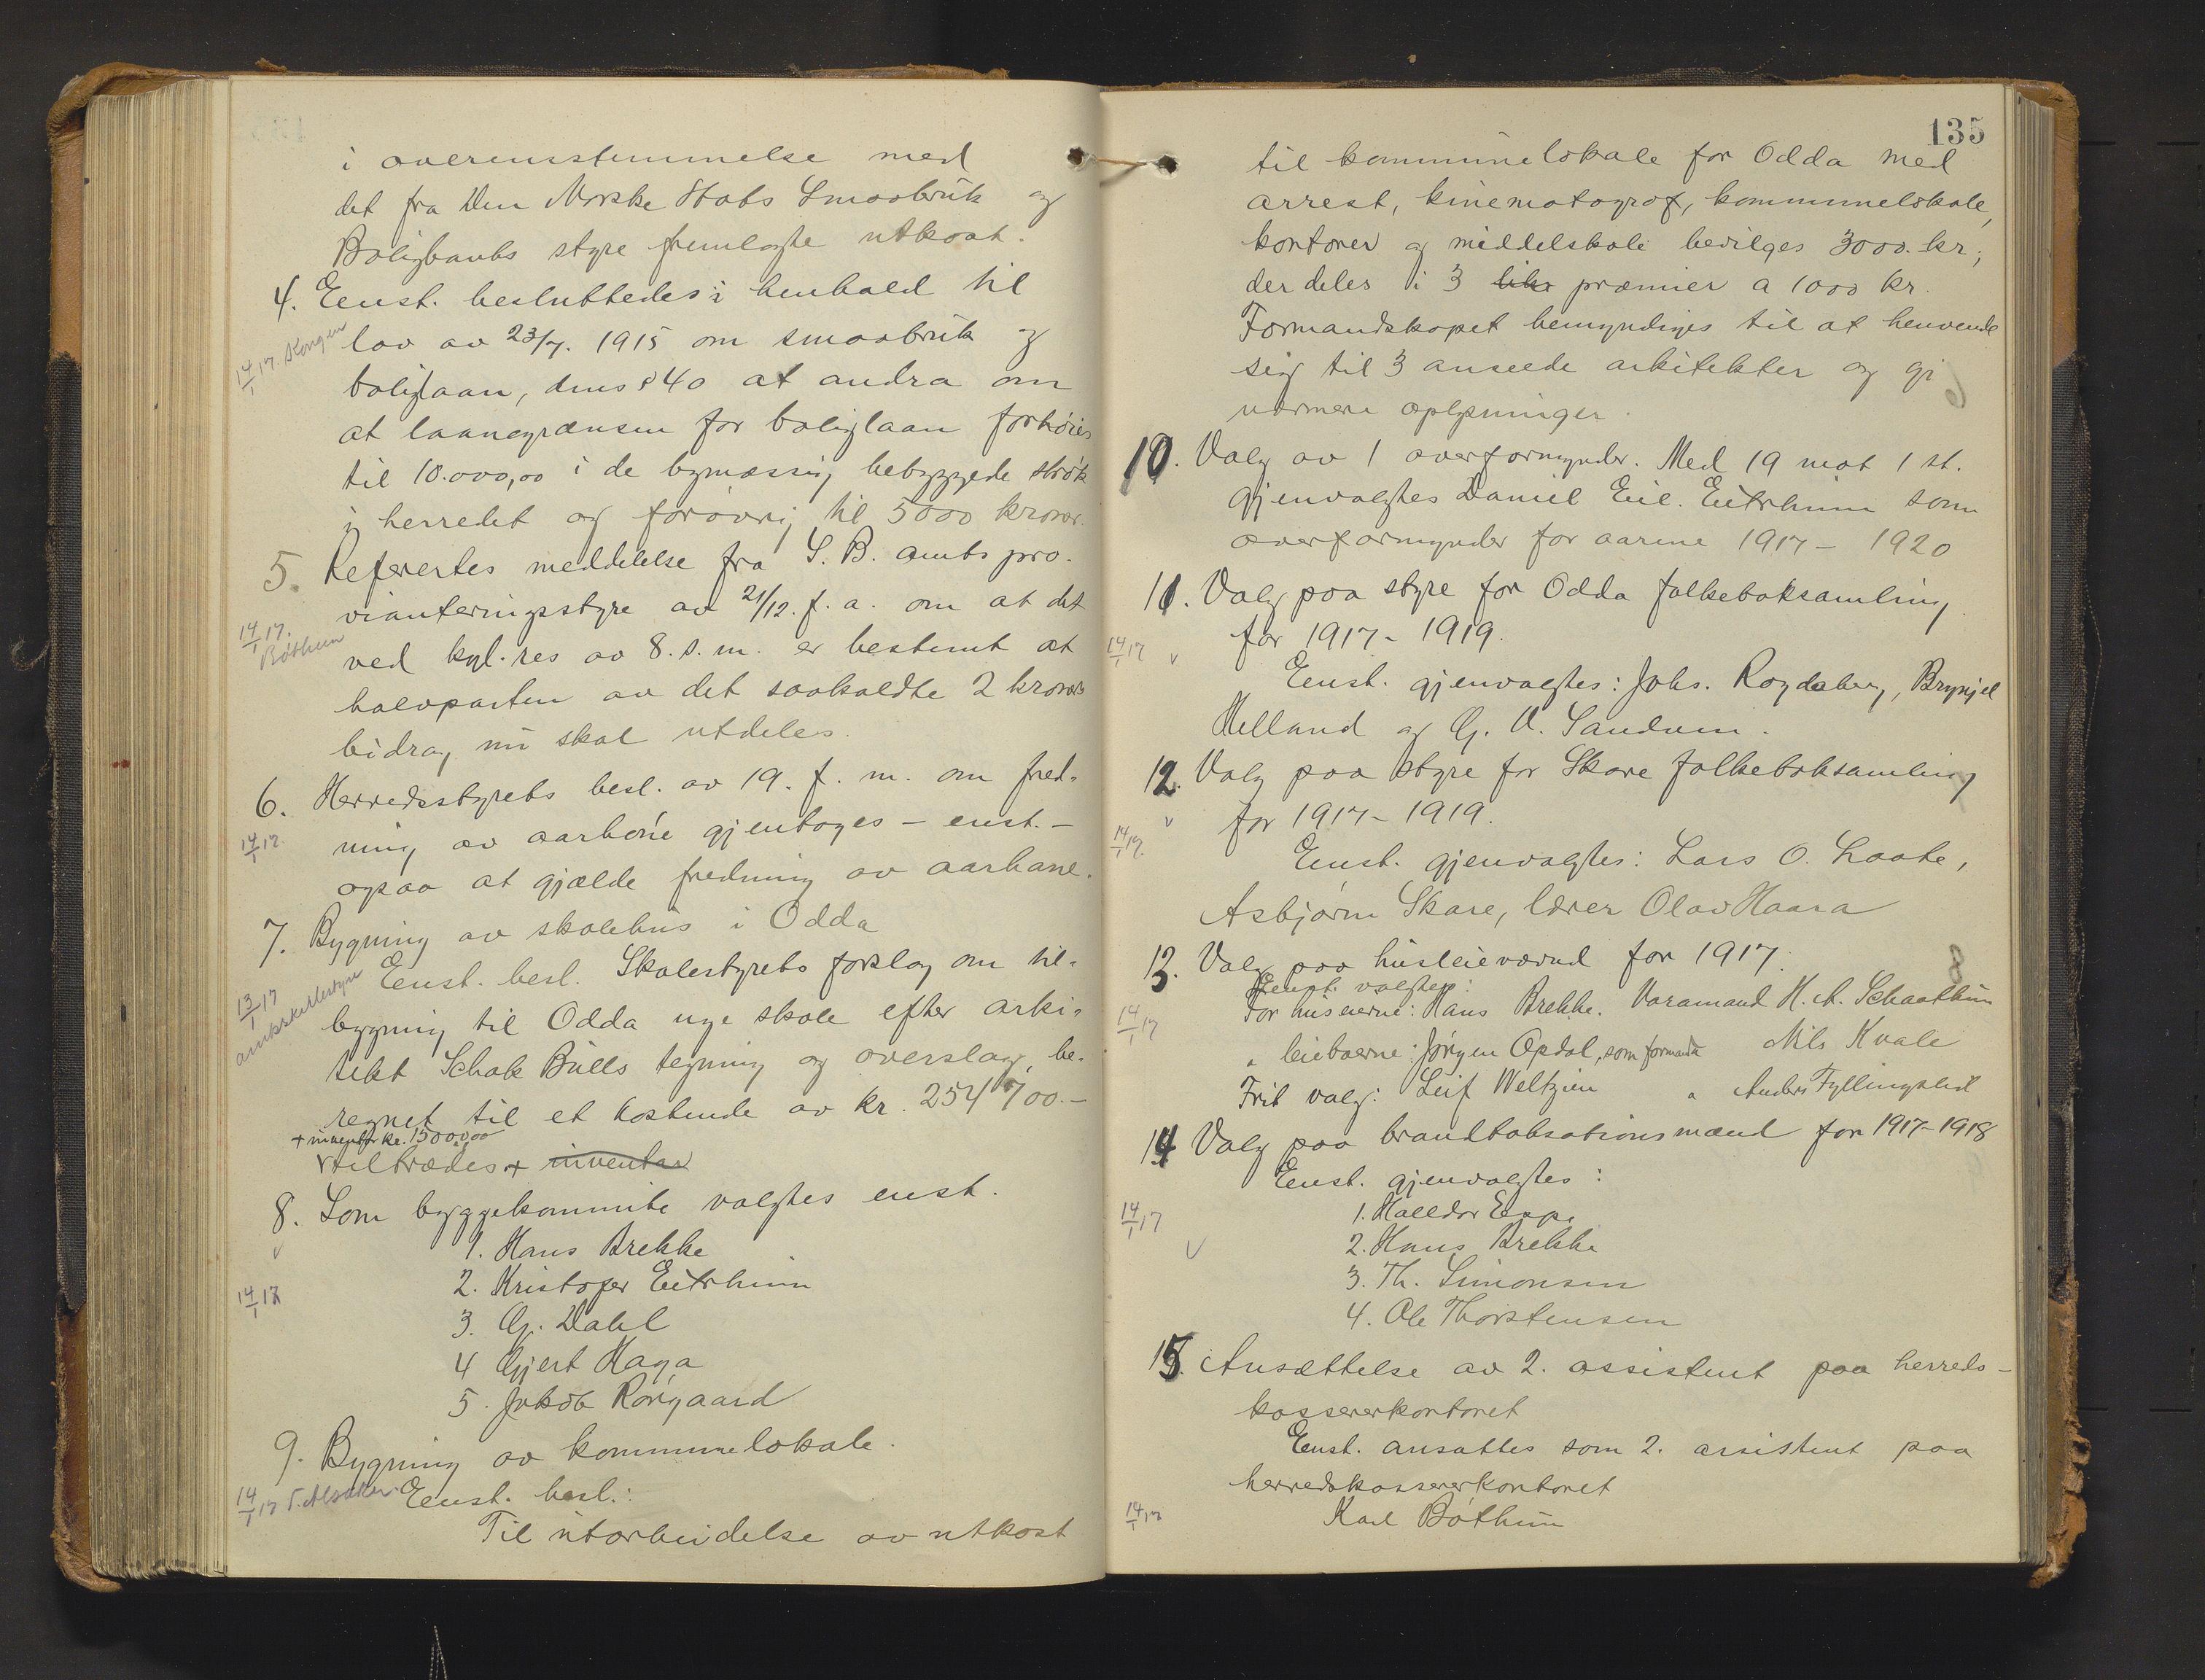 i overensstemmelse med
det fra Den Norske Stats Smaabruk og
Boligbanks styre fremlagte utkast.
4. Eenst. besluttedes i henhold til
14/1 17. Kongen
lov av 23/7. 1915 om smaabruk og
boliglaan, dens § 40 at andra om
at laanegrænsen for boliglaan forhøies
til 10.000,00 i de bymæssig bebyggede strøk
i herredet og forøvrig til 5000 kroner.
5. Refereertes meddelelse fra S. B. amts pro-
vianteringsstyre av 21/12. f. a. om at det
14/1 17. Bøthun
ved kgl. res av 8. s. m. er bestemt at
halvparten av det saakaldte 2 kroners
bidrag nu skal utdeles.
6. Herredsstyrets besl. av 19. f. m. om fred-
14/1 17.
ning av aarhøne gjentages - enst. -
ogsaa at gjælde fredning av aarhane.
7. Bygning av skolehus i Odda
Eenst. besl. Skolestyrets forslag om til-
13/1 17 amtsskolestyre
bygning til Odda nye skole efter arki-
tekt Schak Bulls tegning og overslag, be-
regnet til et kostende av kr. 254700.-
+ inventar kr. 15000,00
tiltrædes + inventar
8. Som byggekommite valgtes enst.
v
1. Hans Brekke
2. Kristofer Eitrheim
14/1 17
3. Gj. Dahl
4 Gjert Haga
5. Jakob Rørgaard
9. Bygning av kommunelokale.
14/1 17 T. Alsaker.
Eenst. besl.:
Til utarbeidelse av utkast
135
til kommunelokale for Odda med
arrest, kinematograf, kommunelokale,
kontorer og middelskole bevilges 3000. kr;
der deles i 3 like præmier a 1000 kr.
Formandskapet bemyndiges til at henvende
sig til 3 anseede arkitekter og gi
nærmere oplysninger.
10. Valg av 1 overformynder. Med 19 mot 1 st.
gjenvalgtes Daniel Eil. Eitrheim som
overformynder for aarene 1917 - 1920
11. Valg paa styre for Odda folkeboksamling
for 1917 - 1919.
14/1 17 v
Eenst. gjenvalgtes: Johs. Rogdaberg, Brynjel
Helland og G. V. Sandven.
12. Valg paa styre for Skare folkeboksamling
for 1917 - 1919.
14/1 17. v
Eenst. gjenvalgtes: Lars O. Laate,
Asbjørn Skare, lærer Olav Haara
13. Valg paa husleieværnd for 1917.
Eenst. valgtes:
14/1 17
For huseierne: Hans Brekke. Varamand H. A. Schaathun
" leieboerne: Jørgen Opdal, som formand Nils Kvale
Frit valg: Leif Weltzien " Anders Fyllingslid
14 Valg paa brandtaksationsmænd for 1917-1918
Eenst. gjenvalgtes:
14/1 17
1. Halldor Espe
v
2. Hans Brekke
3. Th. Simonsen
4. Ole Thorstensen
15. Ansættelse av 2. assistent paa herreds-
kassererkontoret
Eenst. ansattes som 2. assistent paa
herredskassererkontoret
14/1 17
Karl Bøthun